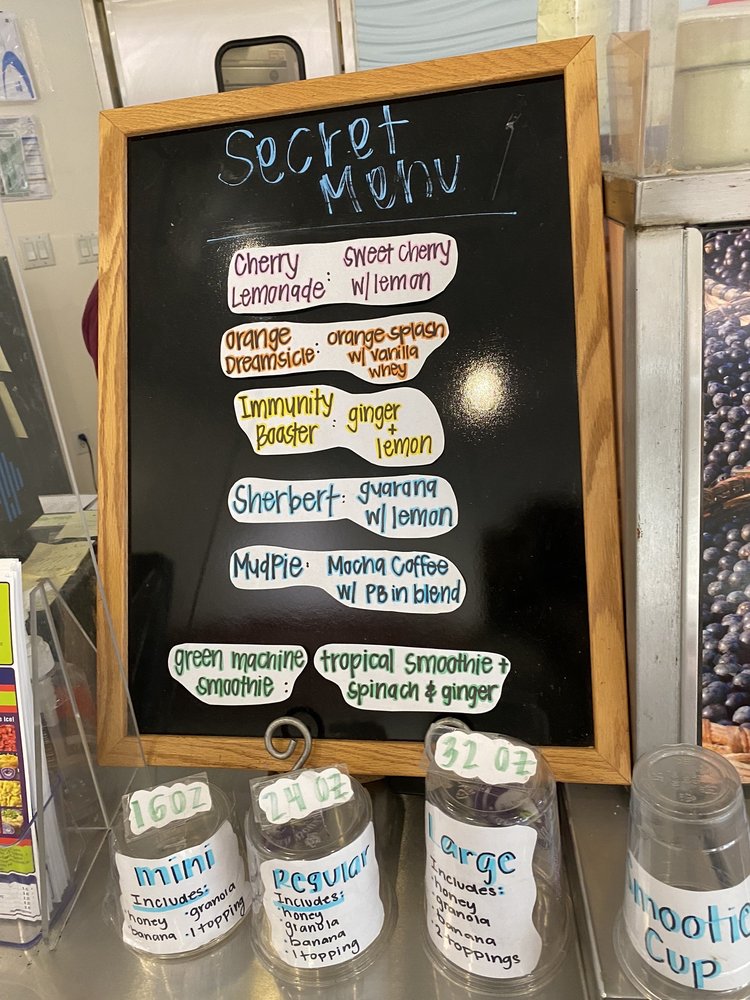 Secret
Menu
Cherry
Lemonade: Sweet Cherry
w/ lemon
orange
Dreamsicle: orange splash
w/ vanilla
whey
Immunity
Booster: ginger
+
lemon
Sherbert: guarana
w/ lemon
MudPie: Mocha Coffee
w/ PB in blend
green machine
smoothie:
tropical smoothie +
spinach & ginger
16OZ
mini
Includes:
honey
banana
· granola
· 1 topping
24 OZ
Regular
Includes:
· honey
granola
· banana
· 1 topping
32 OZ
Large
Includes:
· honey
· granola
· banana
· 2 toppings
Smoothie
Cup